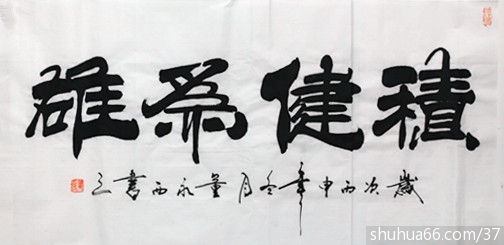 積健為雄
歲次丙申年冬月董永西書之
shuhua66.com/37